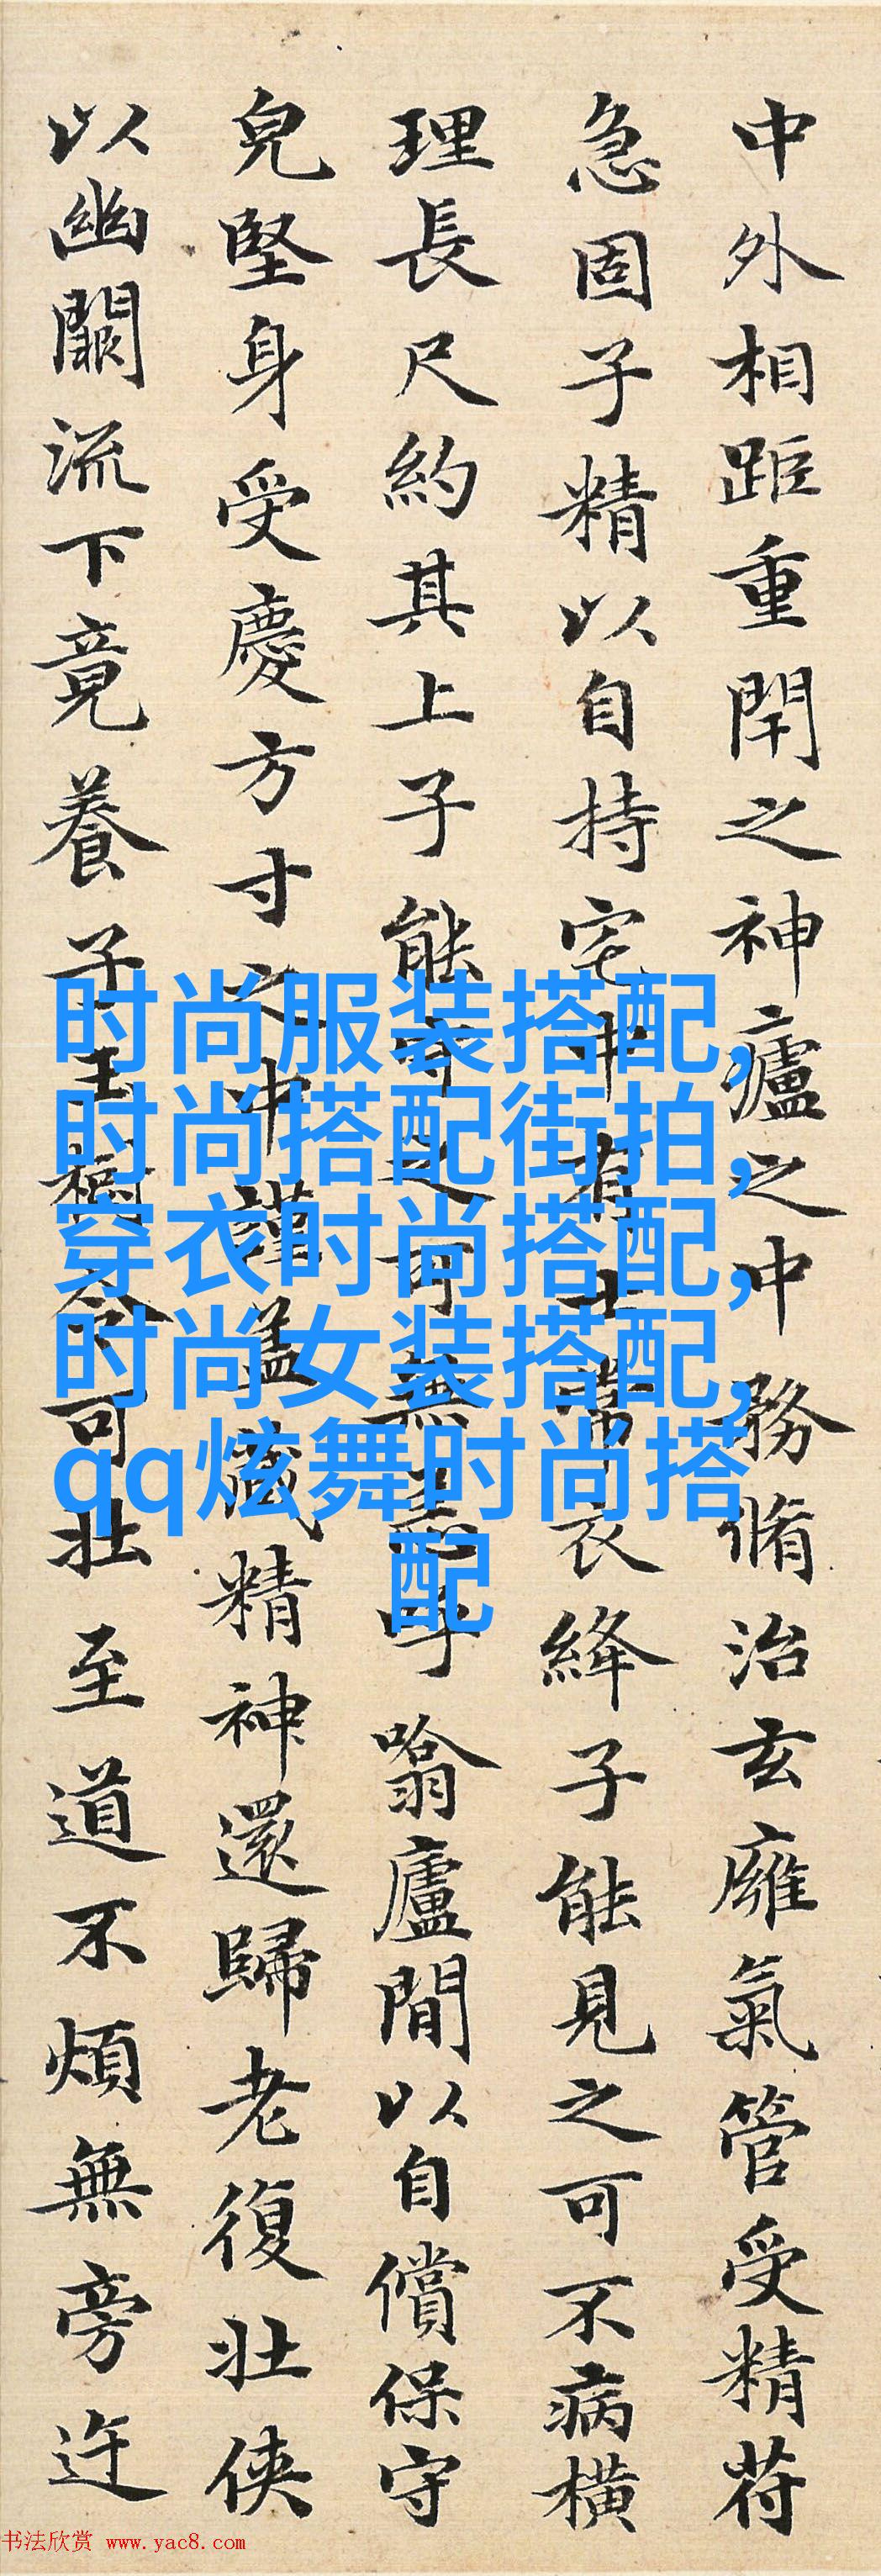 中外相距重閇之神廬之中務脩治玄廱氣管受精苻
急固子精以自持宅中有士常衣絳子能見之可不病橫
理長尺約其上子能守之可無恙呼噏廬間以自償保守
皃堅身受慶方寸之中謹蓋藏精神還歸老復壯俠
以幽闕流下竟養子玉樹令可壯至道不煩無旁迕
时尚服装搭配,
时尚搭配街拍,
穿衣时尚搭配,
时尚女装搭配,
qq炫舞时尚搭
配
书法欣赏 www.yac8.com